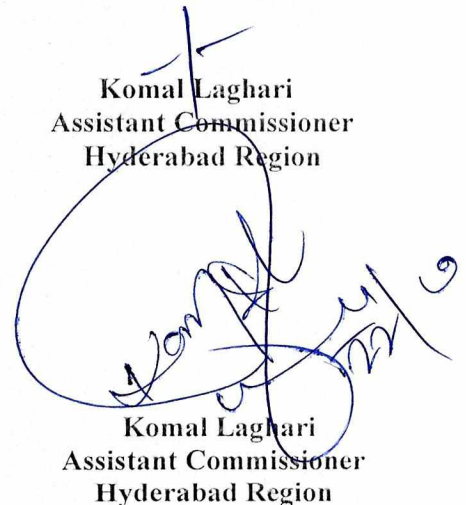 Komal Laghari
Assistant Commissioner
Hyderabad Region
Komal
Komal Laghari
Assistant Commissioner
Hyderabad Region